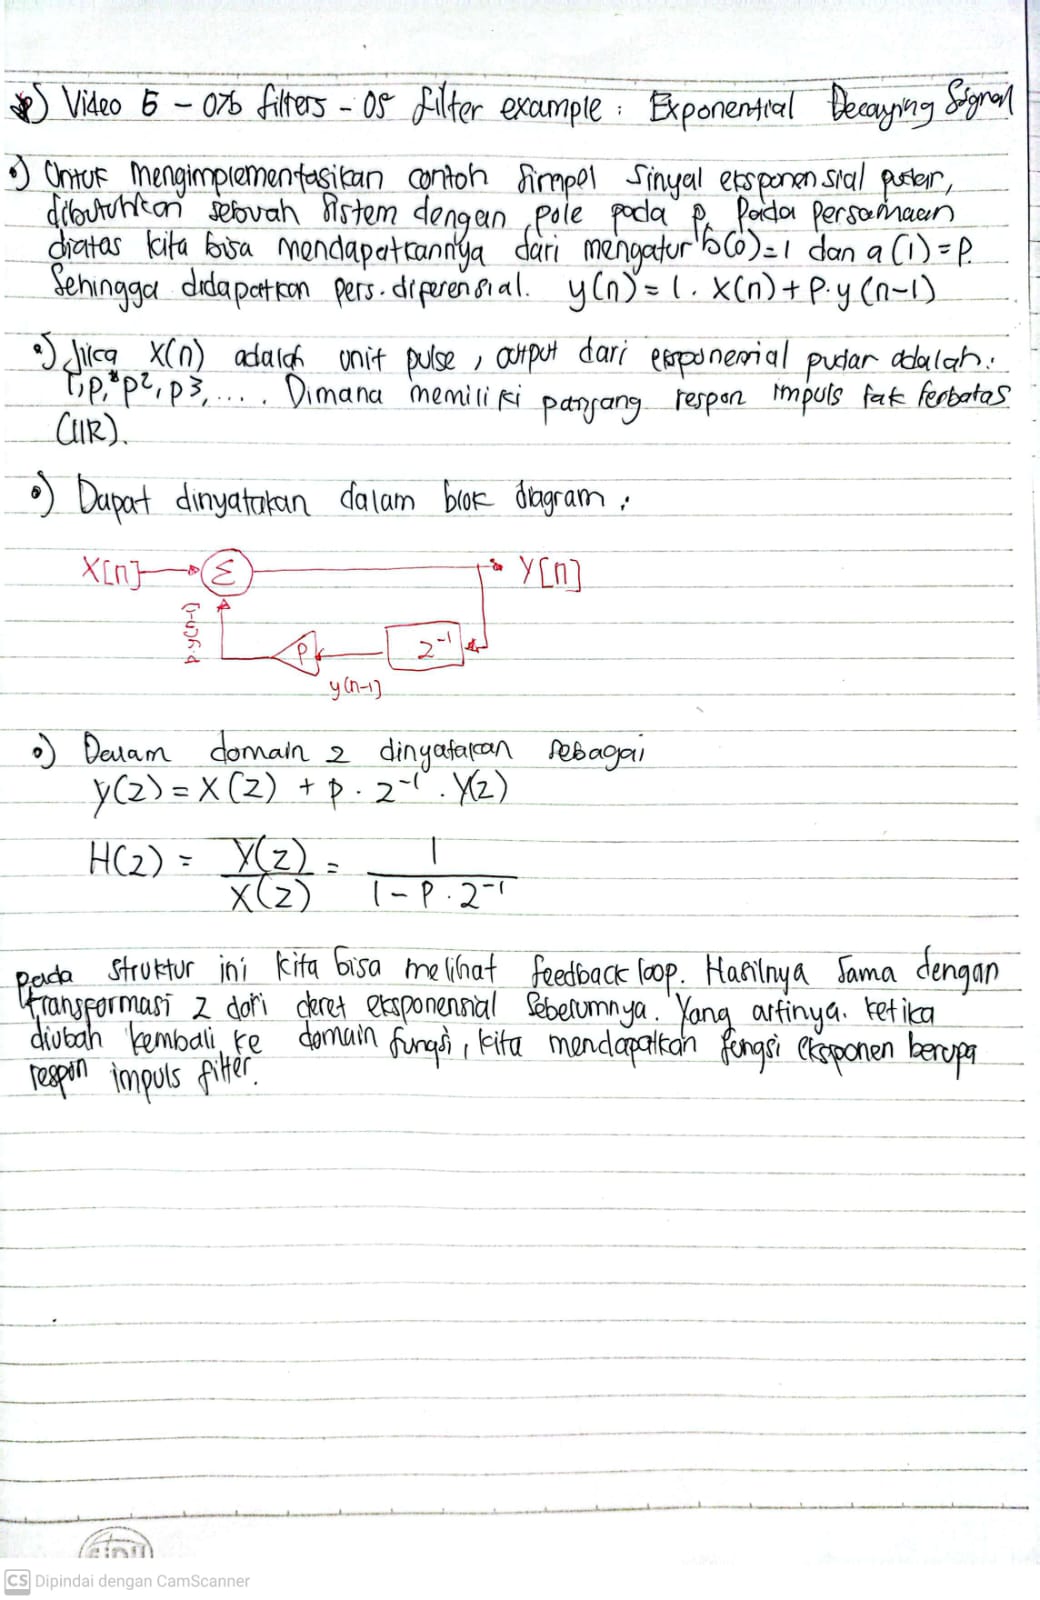 Video 5 - 07b filters - 05 filter example : Exponential Decaying Signal
Untuk mengimplementasikan contoh simpel sinyal eksponensial pudar,
dibutuhkan sebuah sistem dengan pole pada p. Pada persamaan
diatas kita bisa mendapatkannya dari mengatur b(0)=1 dan a(1)=P.
Sehingga didapatkan pers. diferensial. y(n) = 1. x(n) + P. y(n-1)
Jika x(n) adalah unit pulse, output dari eksponensial pudar adalah:
1, p, p2, p3, .... Dimana memiliki panjang respon impuls tak terbatas
(IIR).
Dapat dinyatakan dalam blok diagram :
X[n] Σ Y[n]
P.y(n-1)
P z⁻¹
y(n-1)
Dalam domain z dinyatakan sebagai
Y(z) = X(z) + p . z⁻¹ . Y(z)
H(z) = Y(z) = 1
X(z) 1 - P . z⁻¹
pada struktur ini kita bisa melihat feedback loop. Hasilnya sama dengan
transformasi z dari deret eksponensial sebelumnya. Yang artinya. ketika
diubah kembali ke domain fungsi, kita mendapatkan fungsi eksponen berupa
respon impuls filter.
SIDU
CS Dipindai dengan CamScanner